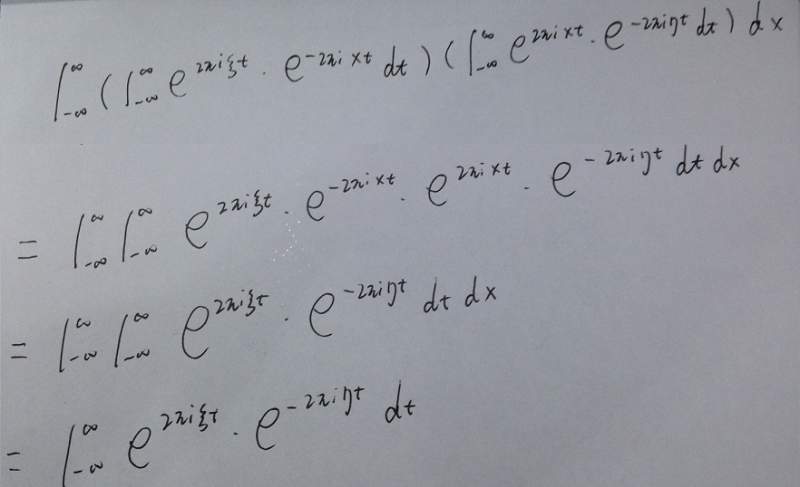 ∫_{-∞}^{∞} ( ∫_{-∞}^{∞} e^{2πiξt} · e^{-2πixt} dt ) ( ∫_{-∞}^{∞} e^{2πixt} · e^{-2πiηt} dt ) dx
= ∫_{-∞}^{∞} ∫_{-∞}^{∞} e^{2πiξt} · e^{-2πixt} · e^{2πixt} · e^{-2πiηt} dt dx
= ∫_{-∞}^{∞} ∫_{-∞}^{∞} e^{2πiξt} · e^{-2πiηt} dt dx
= ∫_{-∞}^{∞} e^{2πiξt} · e^{-2πiηt} dt